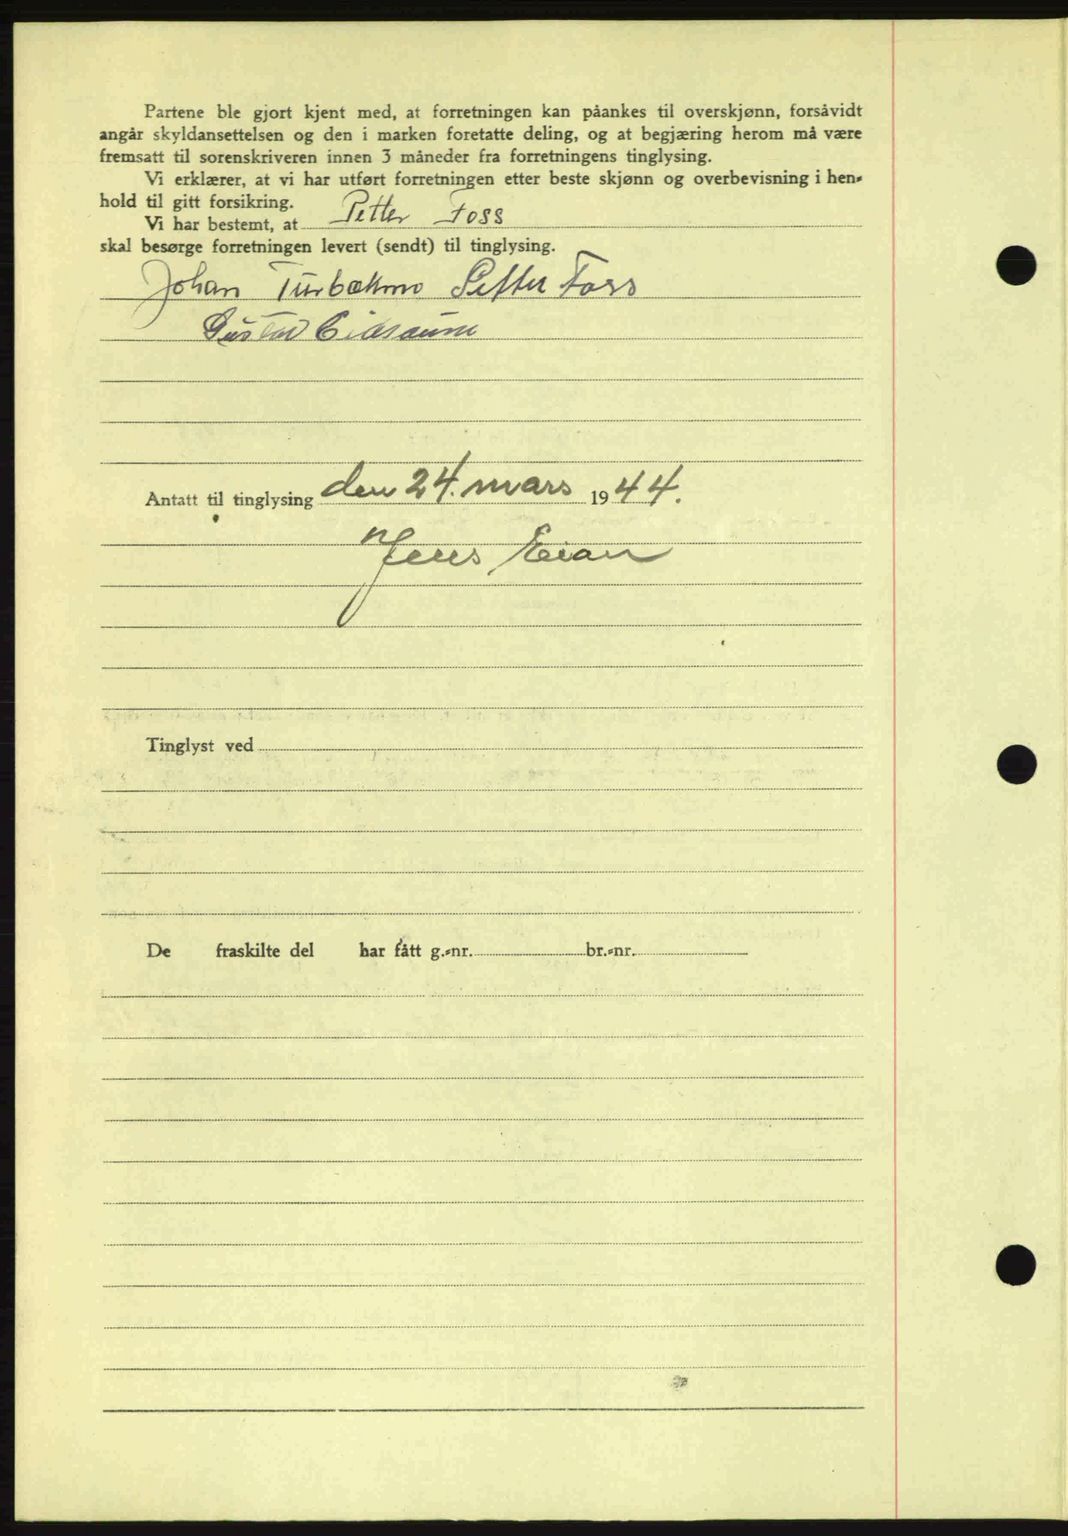 Partene ble gjort kjent med, at forretningen kan påankes til overskjønn, forsåvidt
angår skyldansettelsen og den i marken foretatte deling, og at begjæring herom må være
fremsatt til sorenskriveren innen 3 måneder fra forretningens tinglysing.
Vi erklærer, at vi har utført forretningen etter beste skjønn og overbevisning i hen-
hold til gitt forsikring.
Vi har bestemt, at Petter Foss
skal besørge forretningen levert (sendt) til tinglysing.
Johan Turbækmo Petter Foss
Gustav Eidsaune
Antatt til tinglysing den 24. mars 1944.
Jens Eian
Tinglyst ved
De fraskilte del har fått g.-nr. br.-nr.